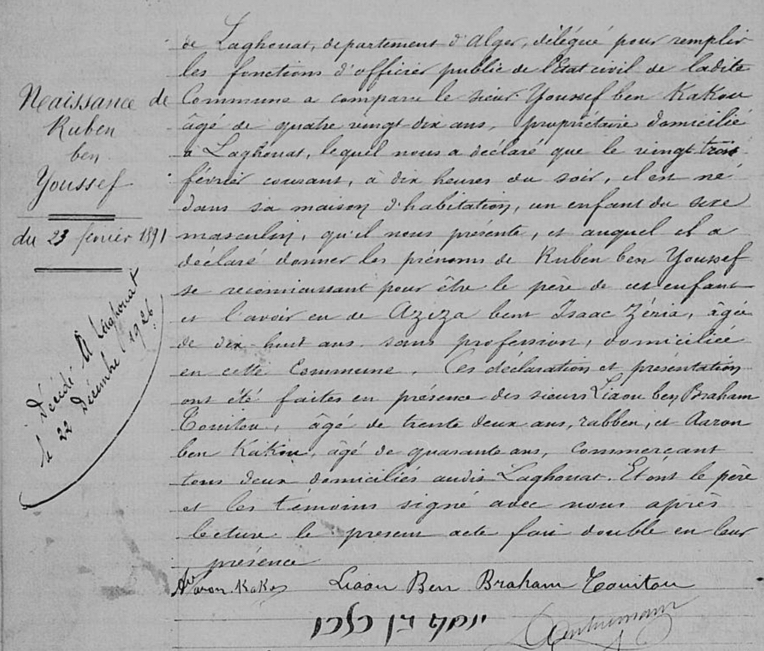 de Laghouat, departement d'Alger, délégué pour remplir
les fonctions d'officier public de l'Etat civil de ladite
Commune a comparu le sieur Youssef ben Kakou
âgé de quatre vingt dix ans, propriétaire domicilié
à Laghouat, lequel nous a déclaré que le vingt trois
février courant, à dix heures du soir, il est né
dans sa maison d'habitation, un enfant du sexe
masculin, qu'il nous presente, et auquel il a
declaré donner les prénoms de Ruben ben Youssef
se reconnaissant pour être le père de cet enfant
et l'avoir eu de Aziza bent Isaac Zéria, âgée
de dix huit ans sans profession, domiciliée
en cette Commune. Ces déclaration et présentation
ont été faites en présence des sieurs Liaou ben Braham
Touitou, âgé de trente deux ans, rabben, et Aaron
ben Kakou, âgé de quarante ans, commerçant
tous deux domiciliés audit Laghouat. Et ont le père
et les témoins signé avec nous après
lecture le present acte fait double en leur
présence
Naissance de
Ruben
ben
Youssef
du 23 fevrier 1891
Décédé à Laghouat
le 22 Décembre 1926
Aaron Kakou
Liaou Ben Braham Touitou